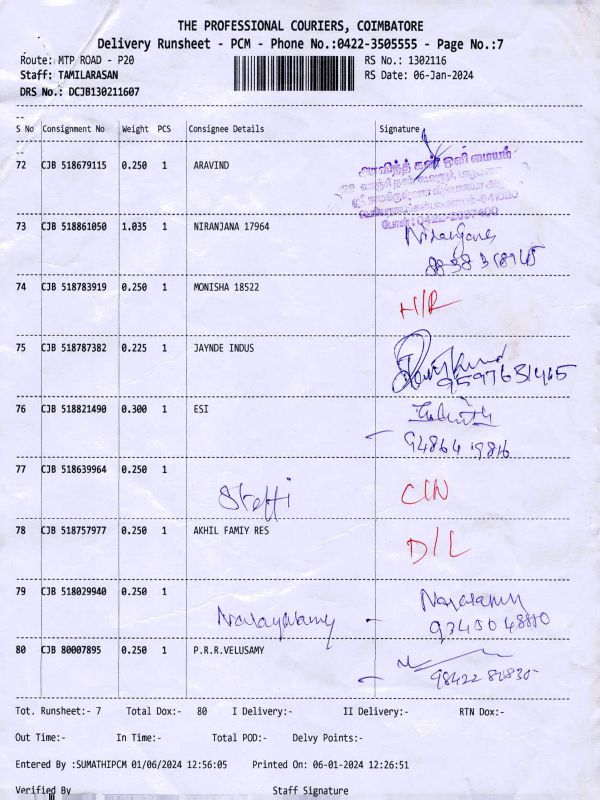 THE PROFESSIONAL COURIERS, COIMBATORE
Delivery Runsheet - PCM - Phone No.:0422-3505555 - Page No.:7
Route: MTP ROAD - P20 RS No.: 1302116
Staff: TAMILARASAN RS Date: 06-Jan-2024
DRS No.: DCJB130211607
S No Consignment No Weight PCS Consignee Details Signature
72 CJB 518679115 0.250 1 ARAVIND
அரவிந்த் கண் ஒளி மையம்
73 CJB 518861050 1.035 1 NIRANJANA 17964
74 CJB 518783919 0.250 1 MONISHA 18522 H/R
75 CJB 518787382 0.225 1 JAYNDE INDUS
76 CJB 518821490 0.300 1 ESI
94864 19816
77 CJB 518639964 0.250 1 Steffi C/N
78 CJB 518757977 0.250 1 AKHIL FAMIY RES D/L
79 CJB 518029940 0.250 1
80 CJB 80007895 0.250 1 P.R.R.VELUSAMY
Tot. Runsheet:- 7 Total Dox:- 80 I Delivery:- II Delivery:- RTN Dox:-
Out Time:- In Time:- Total POD:- Delvy Points:-
Entered By :SUMATHIPCM 01/06/2024 12:56:05 Printed On: 06-01-2024 12:26:51
Verified By Staff Signature